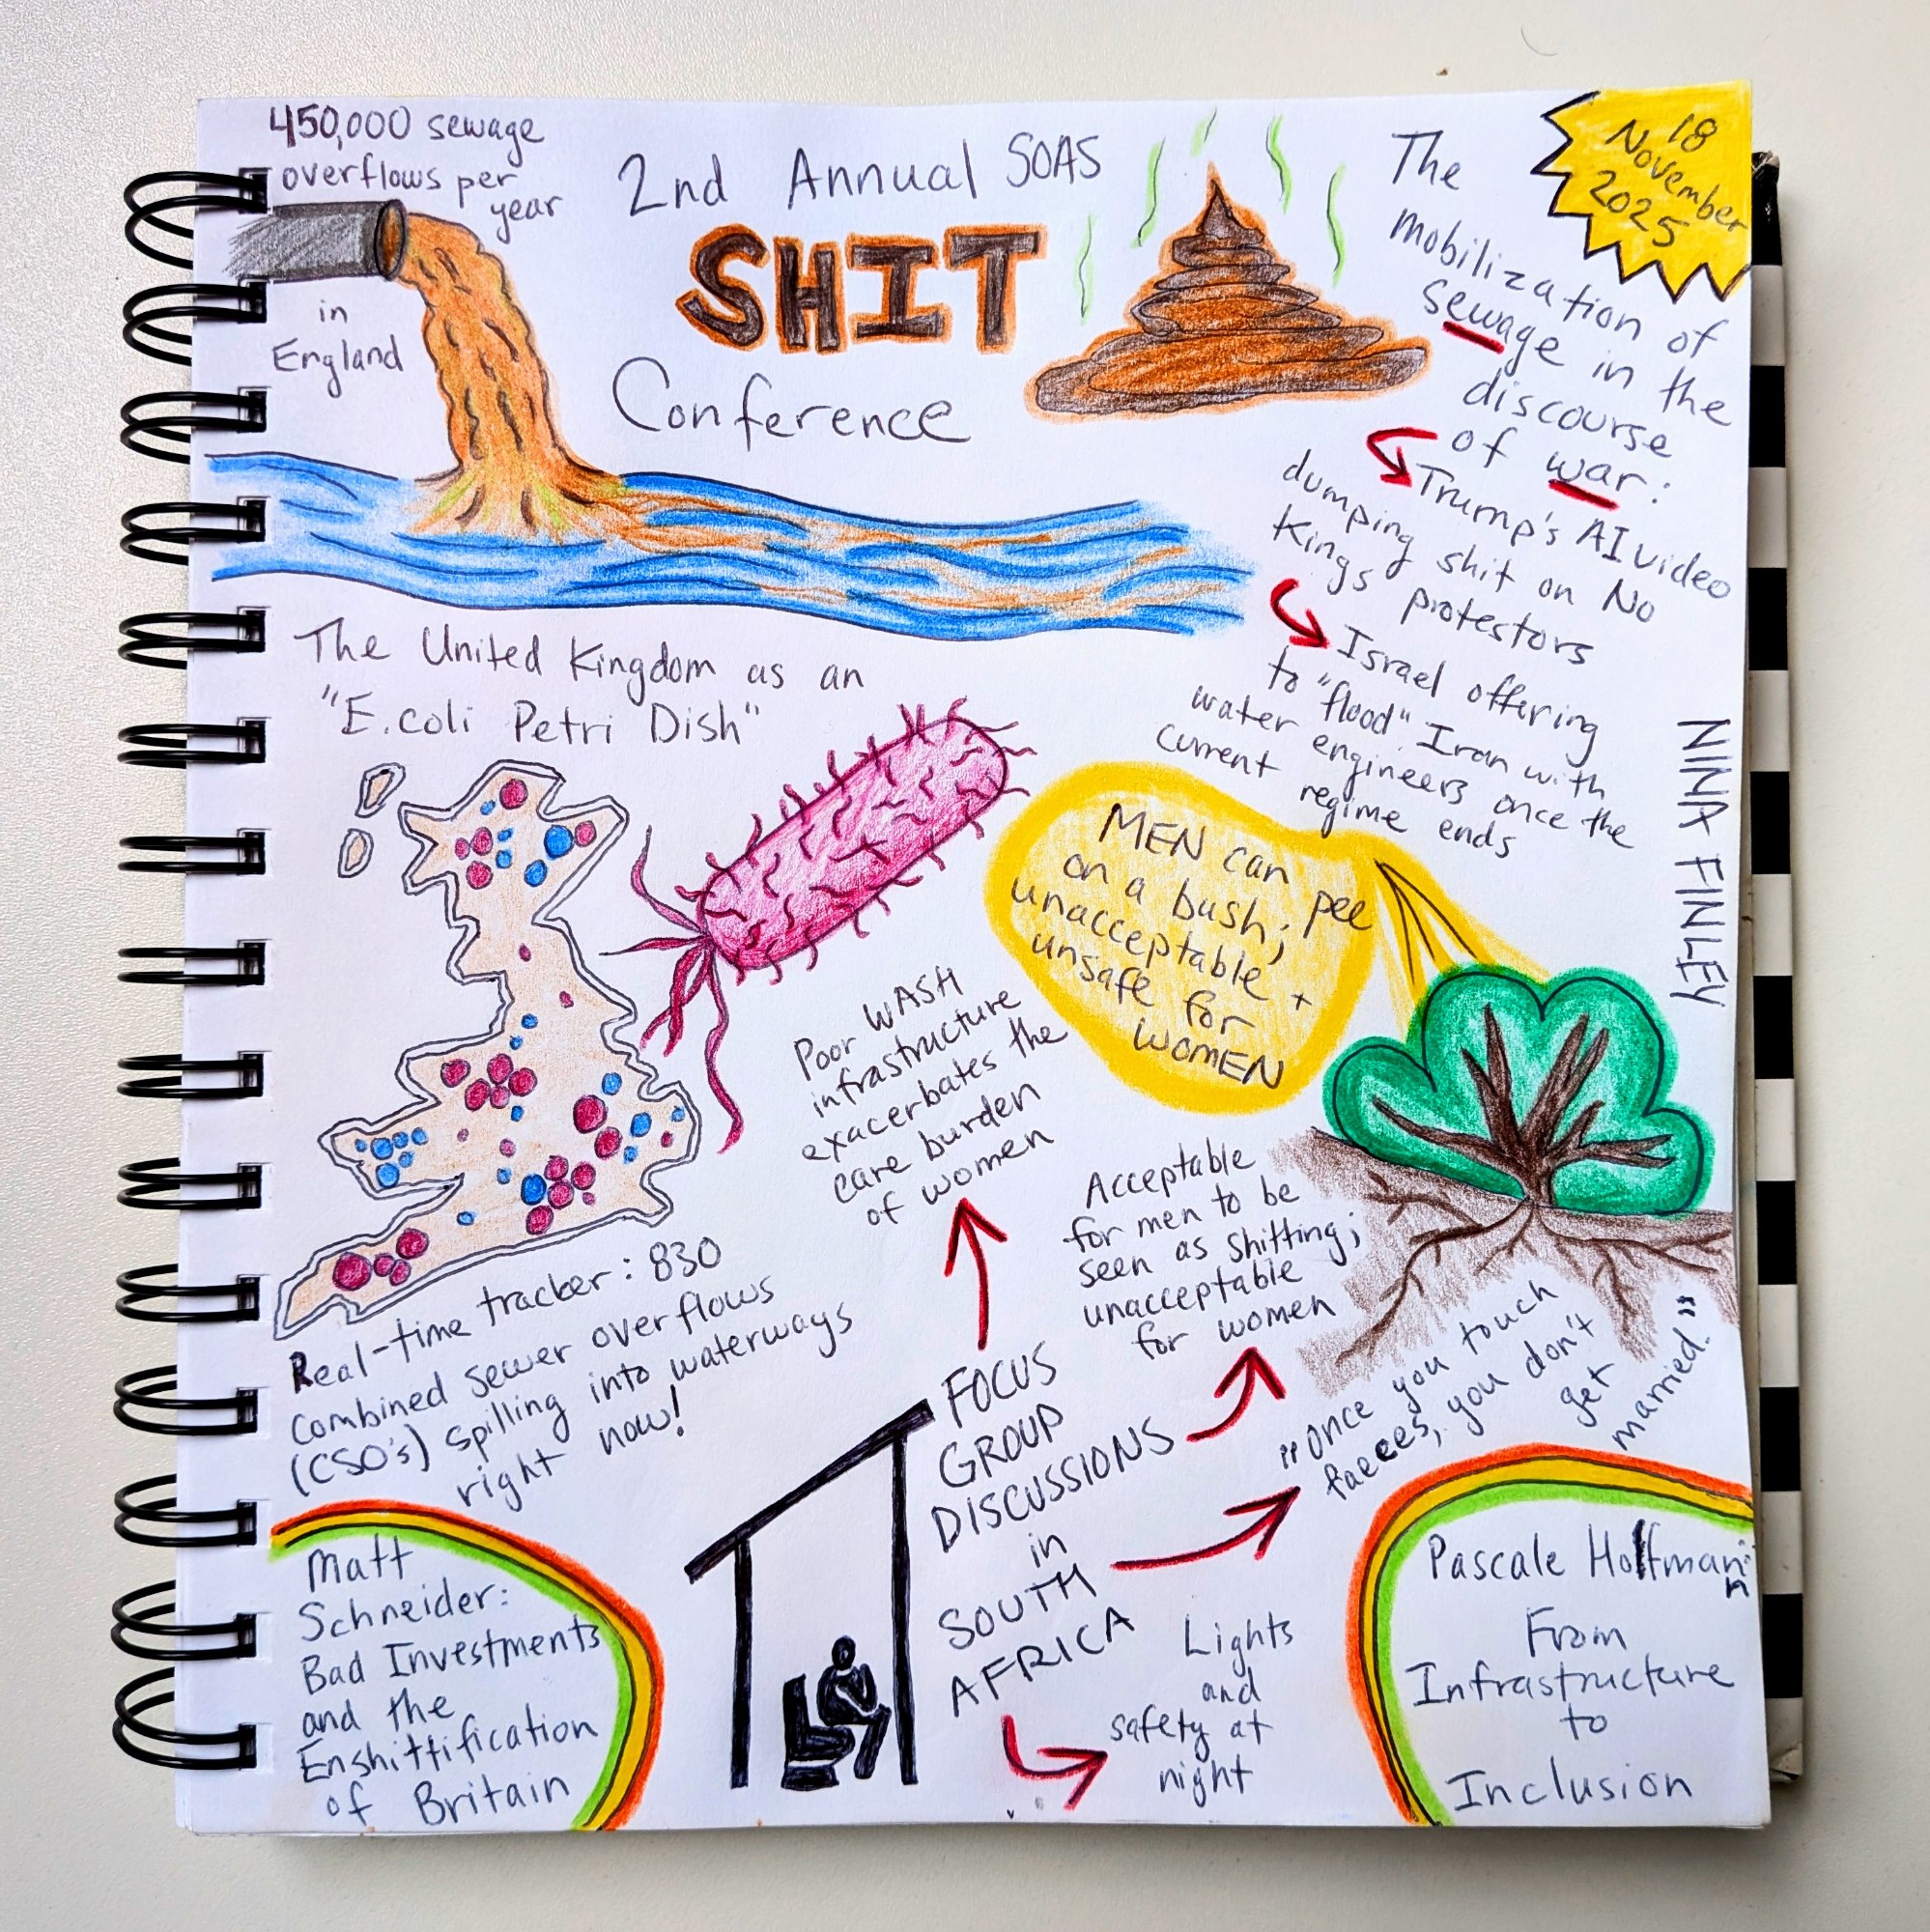 450,000 sewage
overflows per
year
in
England
2nd Annual SOAS
SHIT
Conference
18
November
2025
The
mobilization of
sewage in the
discourse
of war:
Trump's AI video
dumping shit on No
Kings protestors
Israel offering
to "flood" Iran with
water engineers once the
current regime ends
NINA FINLEY
The United Kingdom as an
"E.coli Petri Dish"
MEN can pee
on a bush;
unacceptable +
unsafe for
WOMEN
Poor WASH
infrastructure
exacerbates the
care burden
of women
Acceptable
for men to be
seen as shitting;
unacceptable
for women
Real-time tracker: 830
combined sewer overflows
(CSO's) spilling into waterways
right now!
FOCUS
GROUP
DISCUSSIONS
in
SOUTH
AFRICA
"Once you touch
faeces, you don't
get
married."
Lights
and
safety at
night
Matt
Schneider:
Bad Investments
and the
Enshittification
of Britain
Pascale Hoffmann
From
Infrastructure
to
Inclusion